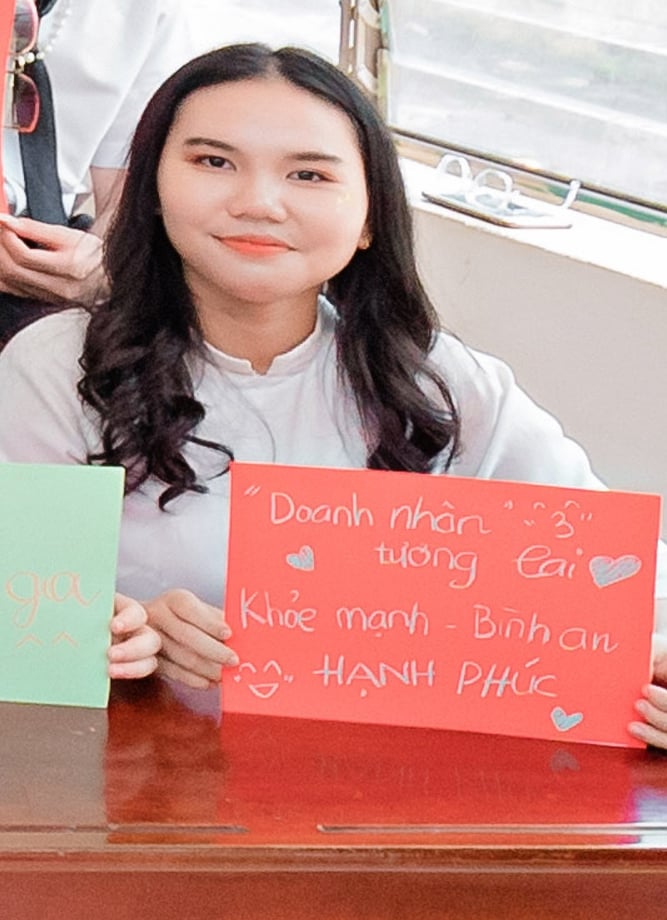 "Doanh nhân ^ ^ 3"
tương lai
Khỏe mạnh - Bình an
HẠNH PHÚC
gia
^ ^